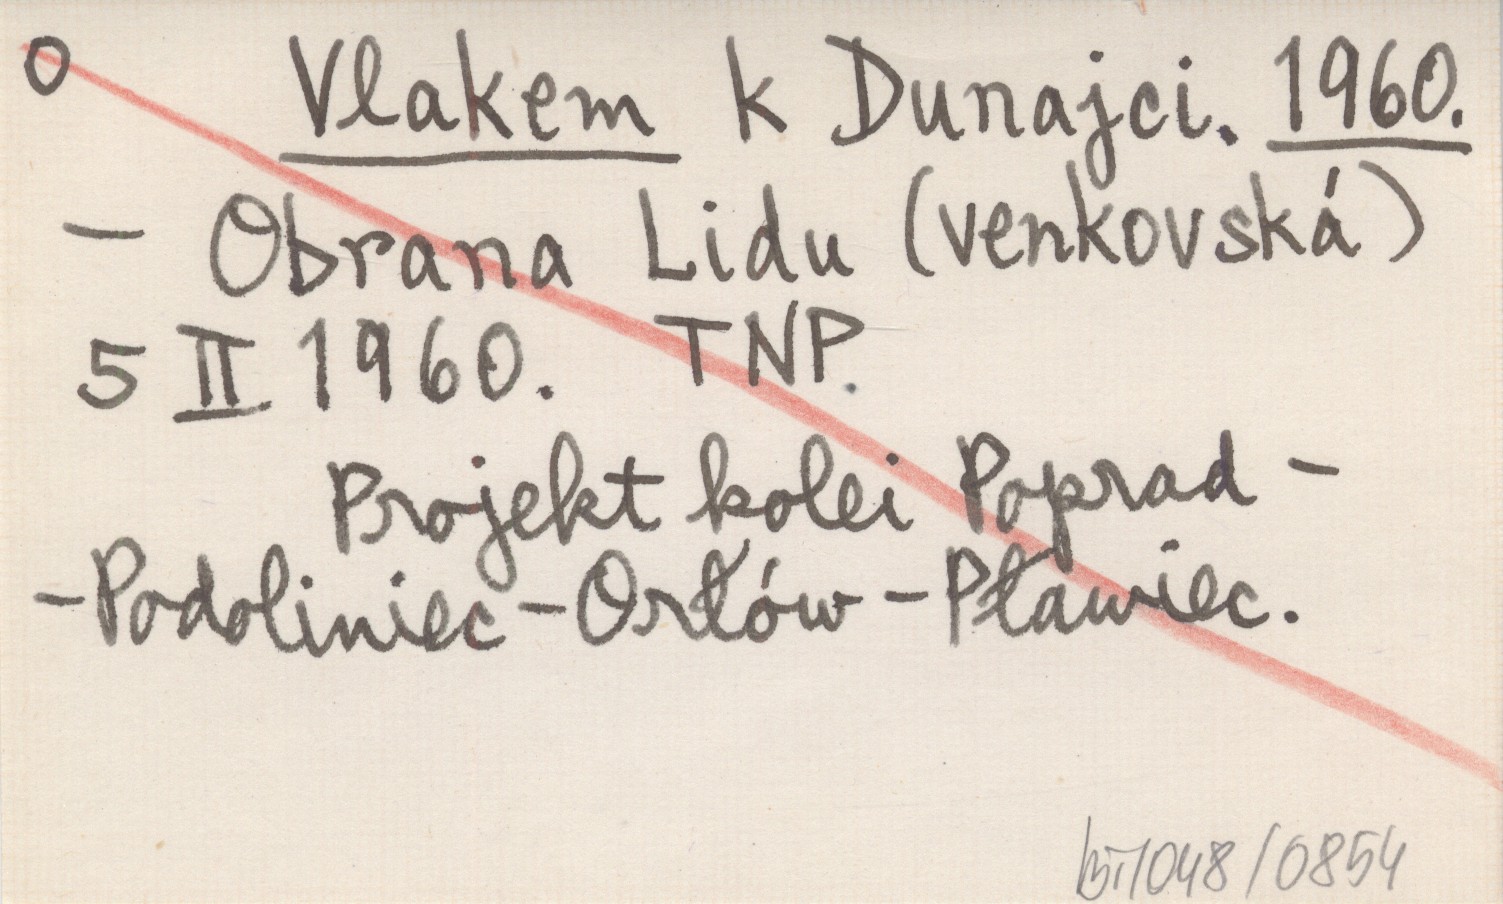 O Vlakem k Dunajci. 1960.
- Obrana Lidu (venkovská)
5 II 1960. TNP.
Projekt kolei Poprad -
- Podoliniec - Orłów - Pławiec.
/048/0854